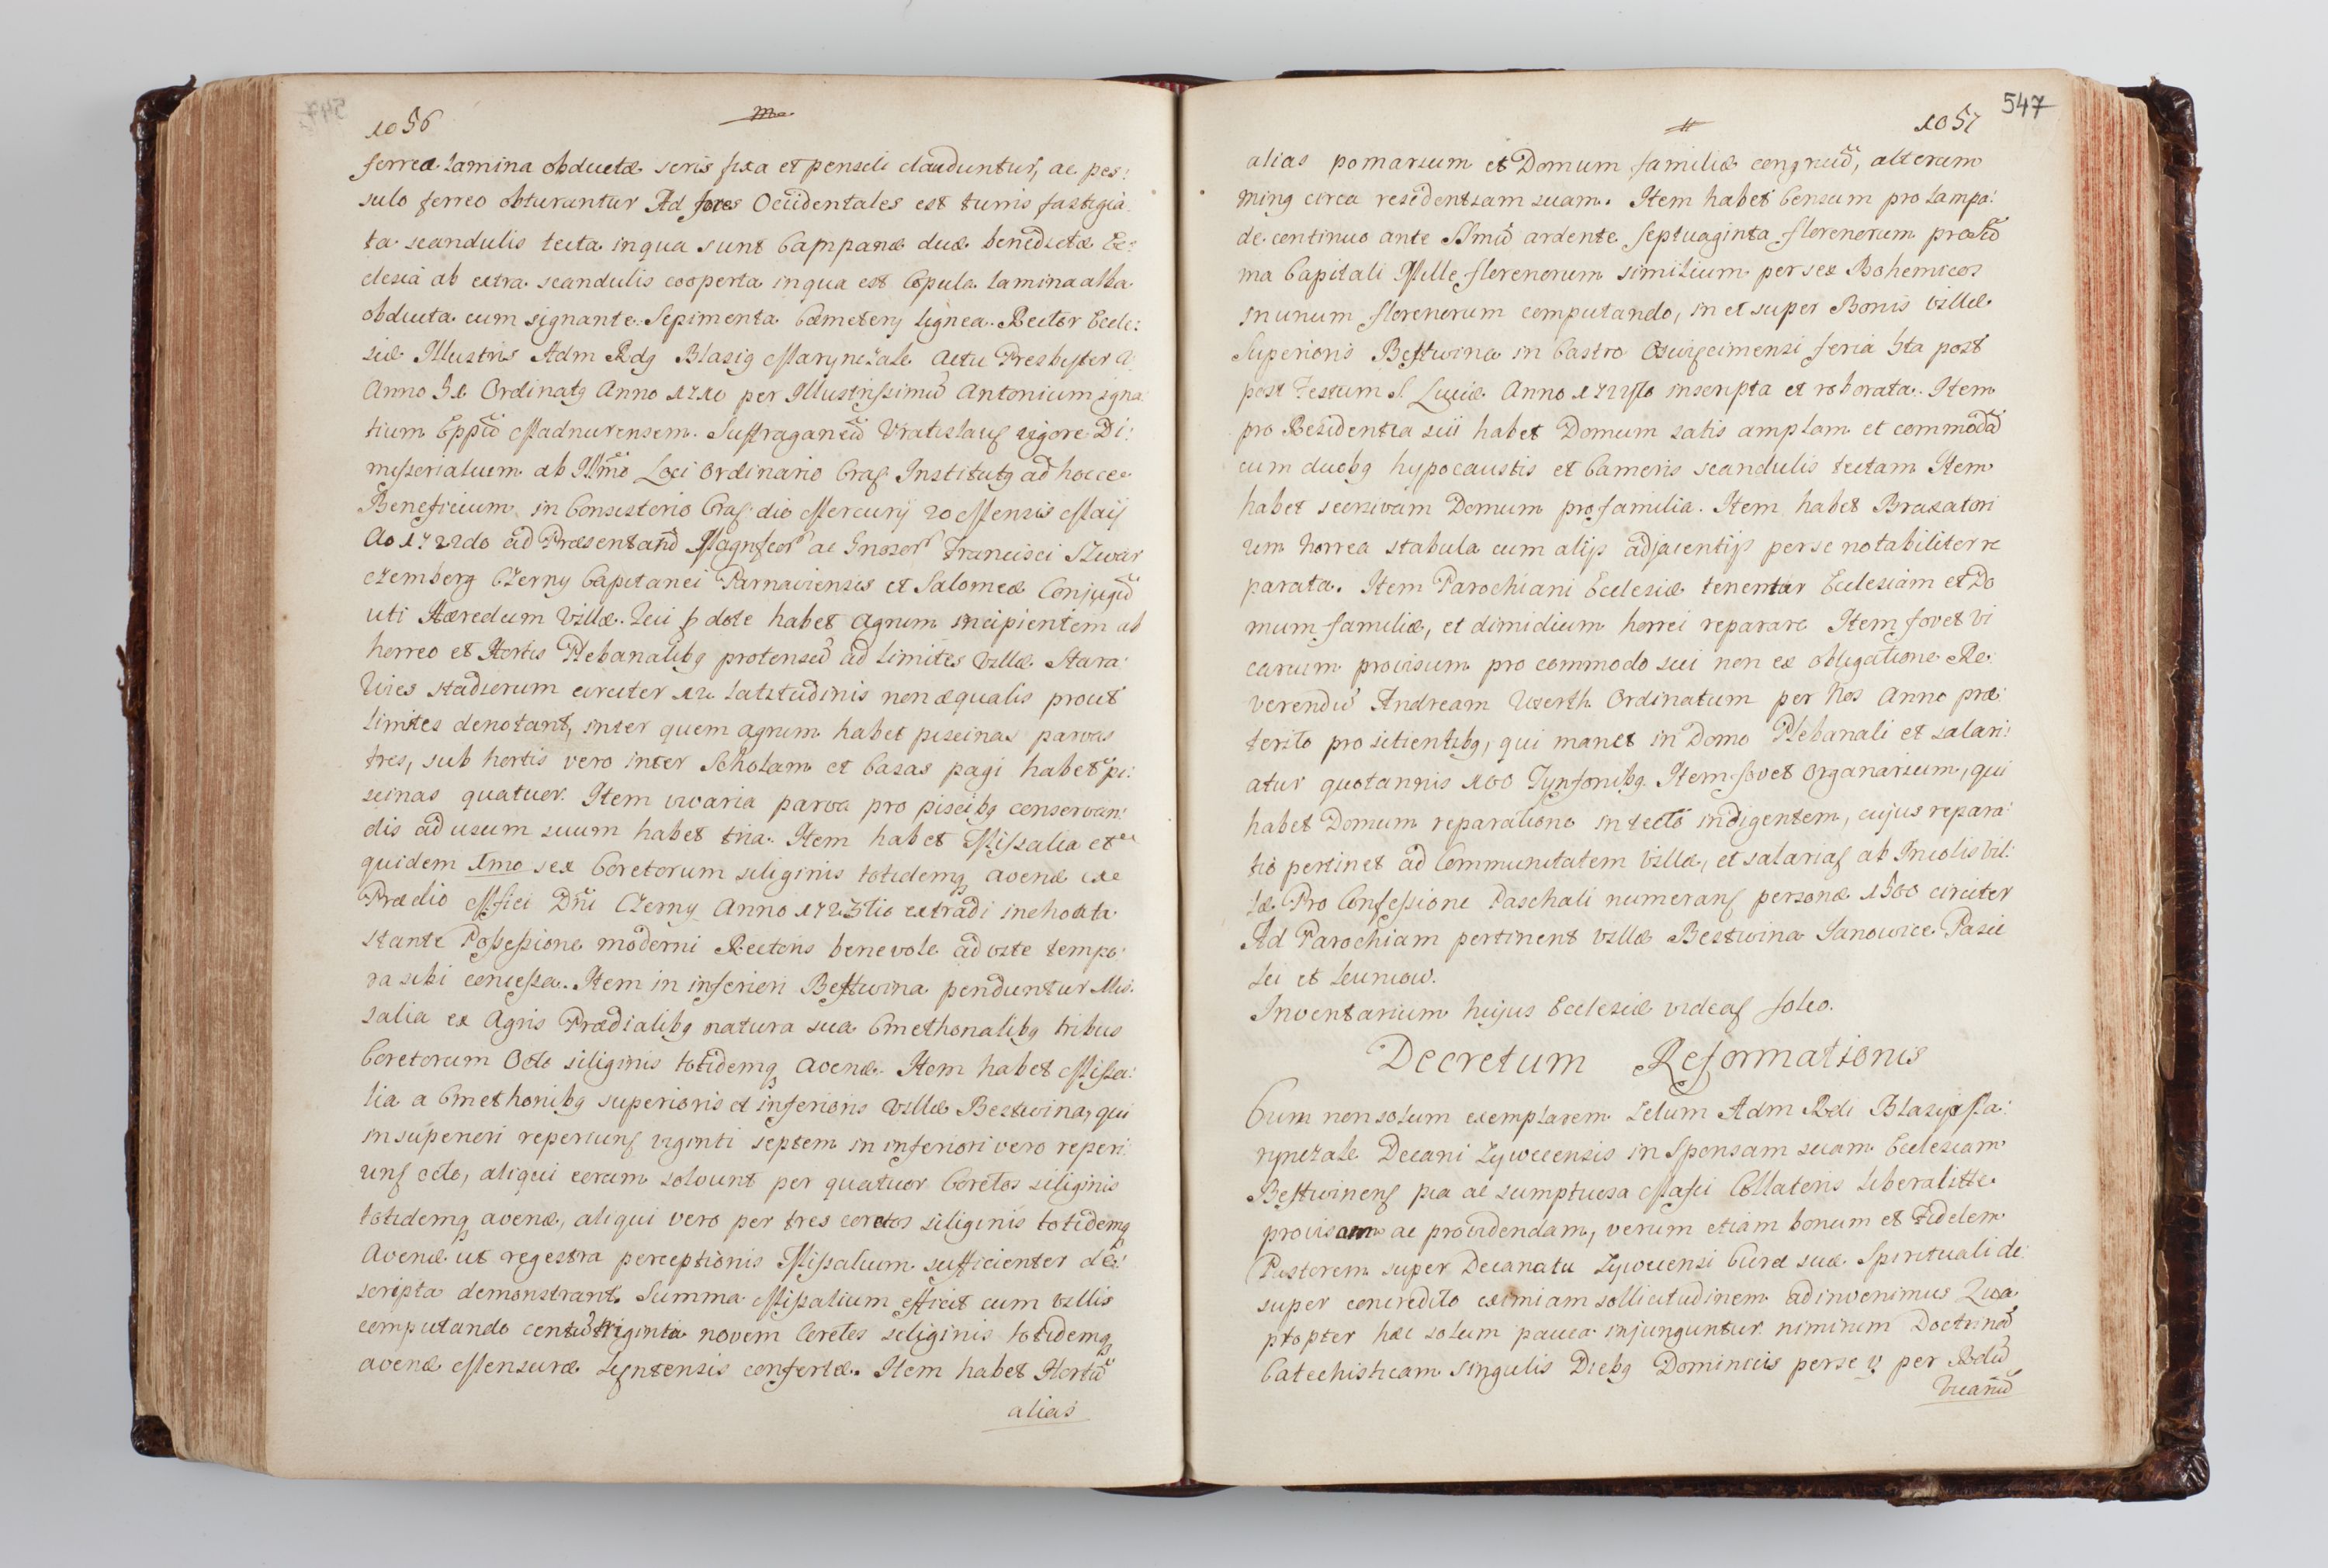 1056
ferrea lamina obductæ seris fixa et penseli clauduntur, ac pes:
sulo ferreo obturantur Ad fores Occidentales est turris fastigia
ta scandulis tecta in qua sunt Campanæ duæ benedictæ Ec:
clesia ab extra scandulis cooperta in qua est Copula lamina alba
obducta cum signante. Sepimenta Cæmeterij lignea. Rector Eccle:
siæ Illustris Adm Rdq Blasiq Marynczale Actu Presbyter a
Anno Ordinatq Anno 1710 per Illustrissimũ Antonium Igna
tium Eppũ Madaurensem. Suffraganeũ Vratislauſ vigore Di:
missorialium ab Illmo Loci Ordinario Craſ Institutq ad hocce
Beneficium in Consistorio Craſ. die Mercurij 20 Mensis Maij
Ao 1722do ad Præsentañd Magnfcor ac Gnosor Francisci Szwar
czemberg Czerny Capitanei Parnaviensis et Salomeæ Conjugũ
uti Hæredum Villæ. Qui p dote habet Agrum incipientem ab
horreo et Hortis Plebanalibq protensũ ad limites Villæ Stara
Wies stadiorum circiter 12 latitudinis non æqualis prout
limites denotant, inter quem agrum habet piscinas parvas
tres, sub hortis vero inter Scholam et Casas pagi habet pi:
scinas quatuor. Item vivaria parva pro piscibq conservan:
dis ad usum suum habet tria. Item habet Missalia et
quidem Imo sex Coretorum siliginis totidemq avenæ ex
Prædio Msici Dñi Czerny Anno 1723tio extradi inchoata
stante Possessione moderni Rectoris benevole ad vitæ tempo:
ra sibi concessa. Item in inferiori Bestwina penduntur Mis:
salia ex Agris Prædialibq natura sua Cmethonalibq tribus
Coretorum Octo siliginis totidemq avenæ. Item habet Missa:
lia a Cmethonibq superioris et inferioris Villæ Bestwina, qui
in superiori reperiunſ viginti septem in inferiori vero reperi:
unſ octo, aliqui eorum solvunt per quatuor Coretos siliginis
totidemq avenæ, aliqui vero per tres coretos siliginis totidemq
Avenæ ut regestra perceptionis Missalium sufficienter de:
scripta demonstrant. Summa Missalium efficit cum Villis
computando centũ triginta novem Coretos siliginis totidemq
avenæ Mensuræ confertæ. Item habet Hortũ
alias
547
1057
alias pomarium et Domum familiæ congruũ, alterum
minq circa residentiam suam. Item habet Censum pro lampa:
de continuo ante SSmũ ardente Septuaginta florenorum pro Sũ
ma Capitali Mille florenorum similium per sex Bohemicos
in unum florenorum computando, in et super Bonis Villæ
Superioris Bestwina in Castro Osviecimensi feria 5ta post
post Festum S. Luciæ Anno 1722do inscripta et roborata. Item
pro Residentia sui habet Domum satis amplam et commodã
cum duobq hypocaustis et Cameris scandulis tectam Item
habet seorsivam Domum pro familia. Item habet Braxatori
um horrea stabula cum alijs adjacentijs per se notabiliter re
parata. Item Parochiani Ecclesiæ tenentur Ecclesiam et Do
mum familiæ, et dimidium horrei reparare Item fovet Vi
carium provisum pro commodo sui non ex obligatione Re:
verendũ Andream Werth Ordinatum per Nos Anno præ:
terito pro sitientibq, qui manet in Domo Plebanali et salari:
atur quotannis 100 Tynfonibq. Item fovet Organarium, qui
habet Domum reparatione in tecto indigentem, cujus repara:
tio pertinet ad Communitatem Villæ, et salariaſ ab Incolis Vil:
læ Pro Confessione Paschali numeranſ personæ 1500 circiter
Ad Parochiam pertinent Villæ Bestwina Janowice Pasie
ki et Leuniow.
Inventarium hujus Ecclesiæ videaſ folio.
Decretum Reformationis
Cum non solum exemplarem Zelum Adm Rdi Blasij Ma:
rynczale Decani Zywecensis in Sponsam suam Ecclesiam
Bestwinenſ pia ac sumptuosa Collatoris liberalitte
provisam ac providendam, verum etiam bonum et Fidelem
Pastorem super Decanatu Zywecensi Curæ suæ Spirituali de
super concredito eximiam sollicitudinem adinvenimus Qua
propter hæc solum pauca injunguntur nimirum Doctrinã
Catechisticam Singulis Diebq Dominicis per se v per Rdũ
Vicariũ